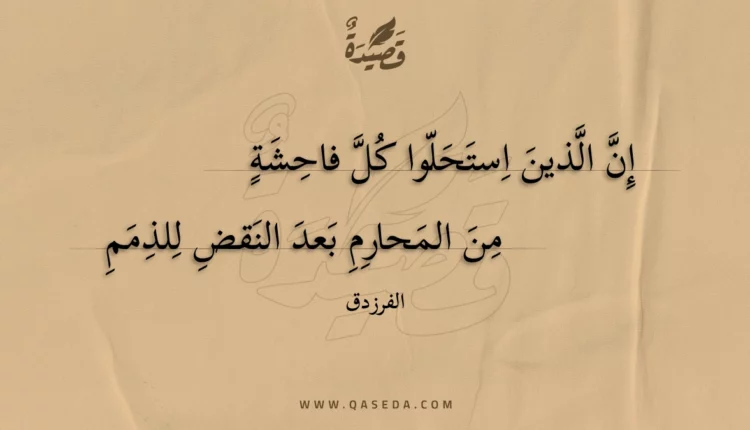 قَصِيدَةٌ
إِنَّ الَّذينَ اِستَحَلّوا كُلَّ فاحِشَةٍ
مِنَ المَحارِمِ بَعدَ النَقضِ لِلذِمَمِ
الفرزدق
WWW.QASEDA.COM